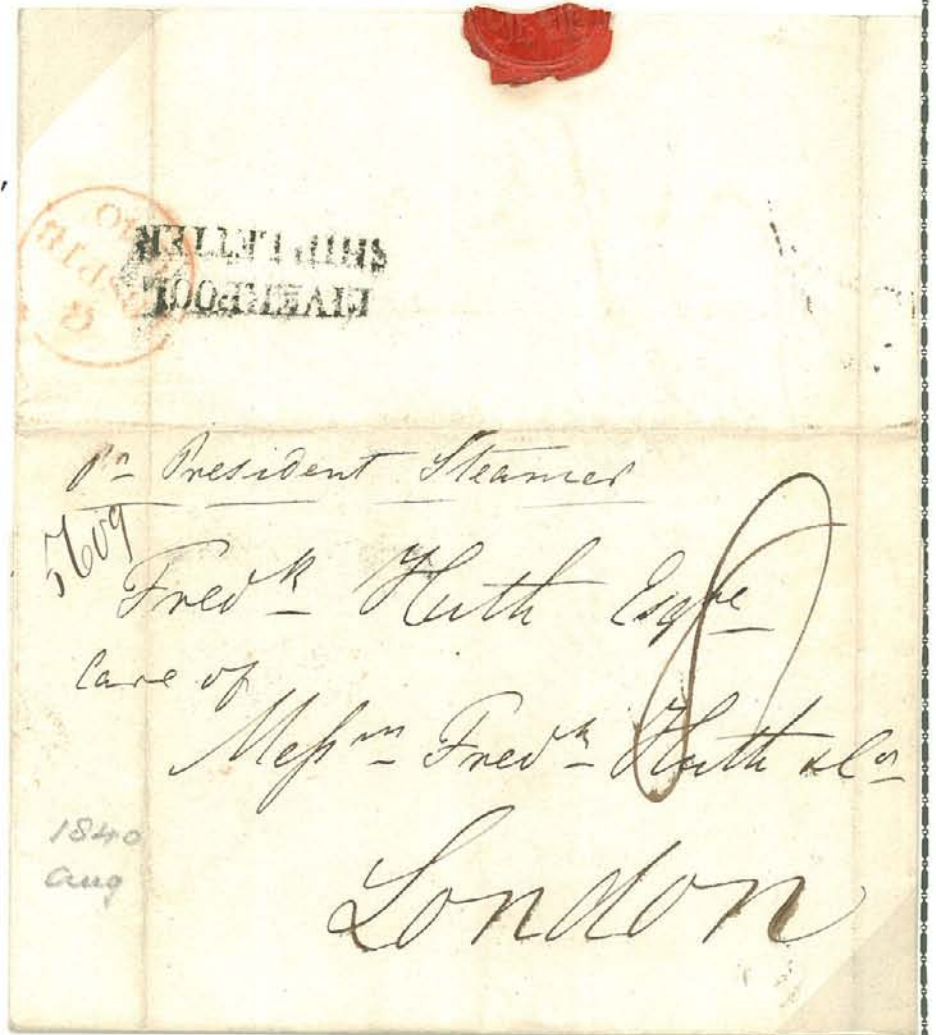 SHIP LETTER
LIVERPOOL
8
Pr President Steamer
5609
Fredk Huth Esqre
Care of
Messrs Fredk Huth & Co
London
8
1840
Aug